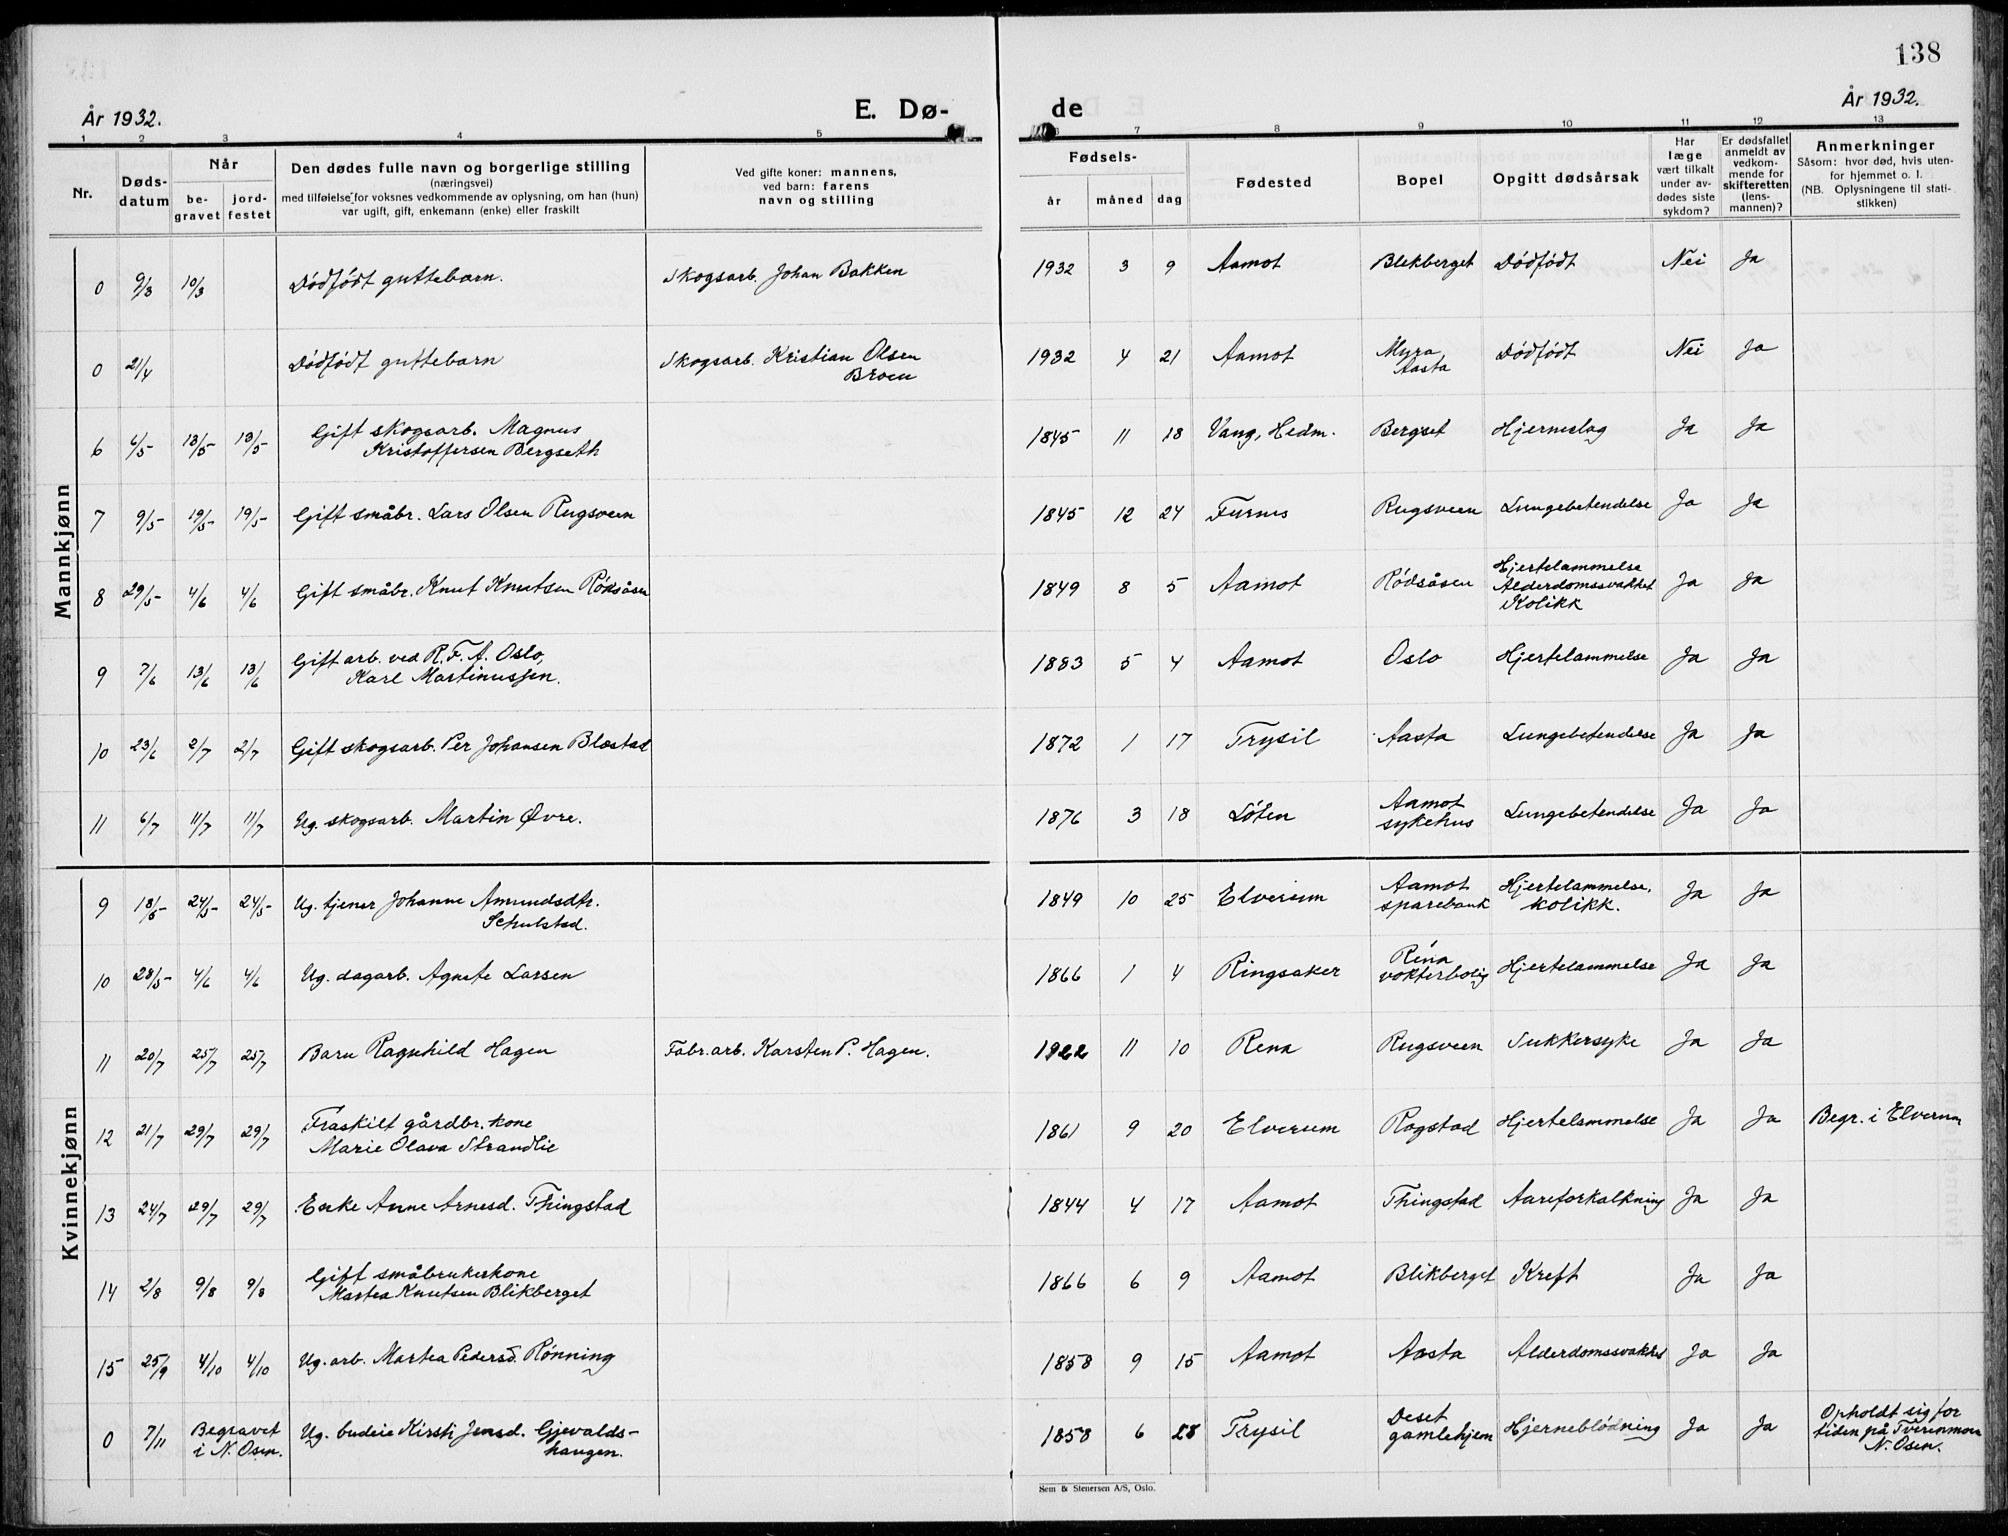 138
År 1932.
E. Dø-
de
År 1932.
1 2 3 4 5 6 7 8 9 10 11 12 13
Nr.
Døds-
datum
Når
be-
gravet
jord-
festet
Den dødes fulle navn og borgerlige stilling
(næringsvei)
med tilføielse for voksnes vedkommende av oplysning, om han (hun)
var ugift, gift, enkemann (enke) eller fraskilt
Ved gifte koner: mannens,
ved barn: farens
navn og stilling
Fødsels-
år måned dag
Fødested
Bopel
Opgitt dødsårsak
Har
læge
vært tilkalt
under av-
dødes siste
sykdom?
Er dødsfallet
anmeldt av
vedkom-
mende for
skifteretten
(lens-
mannen)?
Anmerkninger
Såsom: hvor død, hvis uten-
for hjemmet o. l.
(NB. Oplysningene til stati-
stikken)
Mannkjønn
0 9/3 10/3 Dödfödt guttebarn. Skogsarb. Johan Bakken 1932 3 9 Aamot Blekberget Dödfödt Nei Ja
0 21/4 Dödfödt guttebarn Skogsarb. Kristian Olsen
Broen
1932 4 21 Aamot Myra
Aasta
Dödfödt Nei Ja
6 6/5 13/5 13/5 Gift skogsarb. Magnus
Kristoffersen Bergseth
1845 11 18 Vang, Hedm. Bergset Hjerneslag Ja Ja
7 9/5 19/5 19/5 Gift småbr. Lars Olsen Rugsveen 1845 12 24 Furnes Rugsveen Lungebetendelse Ja Ja
8 29/5 4/6 4/6 Gift småbr. Knut Knutsen Rødsåsen 1849 8 5 Aamot Rödsåsen Hjertelammelse
Alderdomssvakhet
Kolikk
Ja Ja
9 7/6 13/6 13/6 Gift arb. ved R.F.A. Oslo,
Karl Martinussen.
1883 5 4 Aamot Oslo Hjertelammelse Ja Ja
10 23/6 2/7 2/7 Gift skogsarb. Per Johansen Blæstad 1872 1 17 Trysil Aasta Lungebetendelse Ja Ja
11 6/7 11/7 11/7 Ug. skogsarb. Martin Øvre. 1876 3 18 Löten Aamot
sykehus
Lungebetendelse Ja Ja
Kvinnekjønn
9 18/5 24/5 24/5 Ug. tjener Johanne Amundsdtr.
Schulstad.
1849 10 25 Elverum Aamot
sparebank
Hjertelammelse,
kolikk.
Ja Ja
10 28/5 4/6 4/6 Ug. dagarb. Agnete Larsen 1866 1 4 Ringsaker Rena
vokterbolig
Hjertelammelse Ja Ja
11 20/7 25/7 25/7 Barn Ragnhild Hagen Fabr.arb. Karsten P. Hagen. 1922 11 10 Rena Rugsveen Sukkersyke Ja Ja
12 21/7 29/7 29/7 Fraskilt gårdbr. kone
Marie Olava Strandlie
1861 9 20 Elverum Rogstad Hjertelammelse Ja Ja Begr. i Elverum
13 24/7 29/7 29/7 Enke Anne Arnesd. Thingstad 1844 4 17 Aamot Thingstad Aareforkalkning Ja Ja
14 2/8 9/8 9/8 Gift småbrukerkone
Martea Knutsen Blikberget
1866 6 9 Aamot Blikberget Kreft Ja Ja
15 25/9 4/10 4/10 Ug. arb. Martea Pedersd. Rönning 1858 9 15 Aamot Aasta Alderdomssvakhet Ja Ja
0 7/11 Begravet
i N. Osen.
Ug. budeie Kirsti Jensd. Gjevalds-
haugen.
1858 6 28 Trysil Deset
gamlehjem
Hjerneblödning Ja Ja Opholdt sig for
tiden på Tverenmoen
N. Osen.
Sem & Stenersen A/S, Oslo.